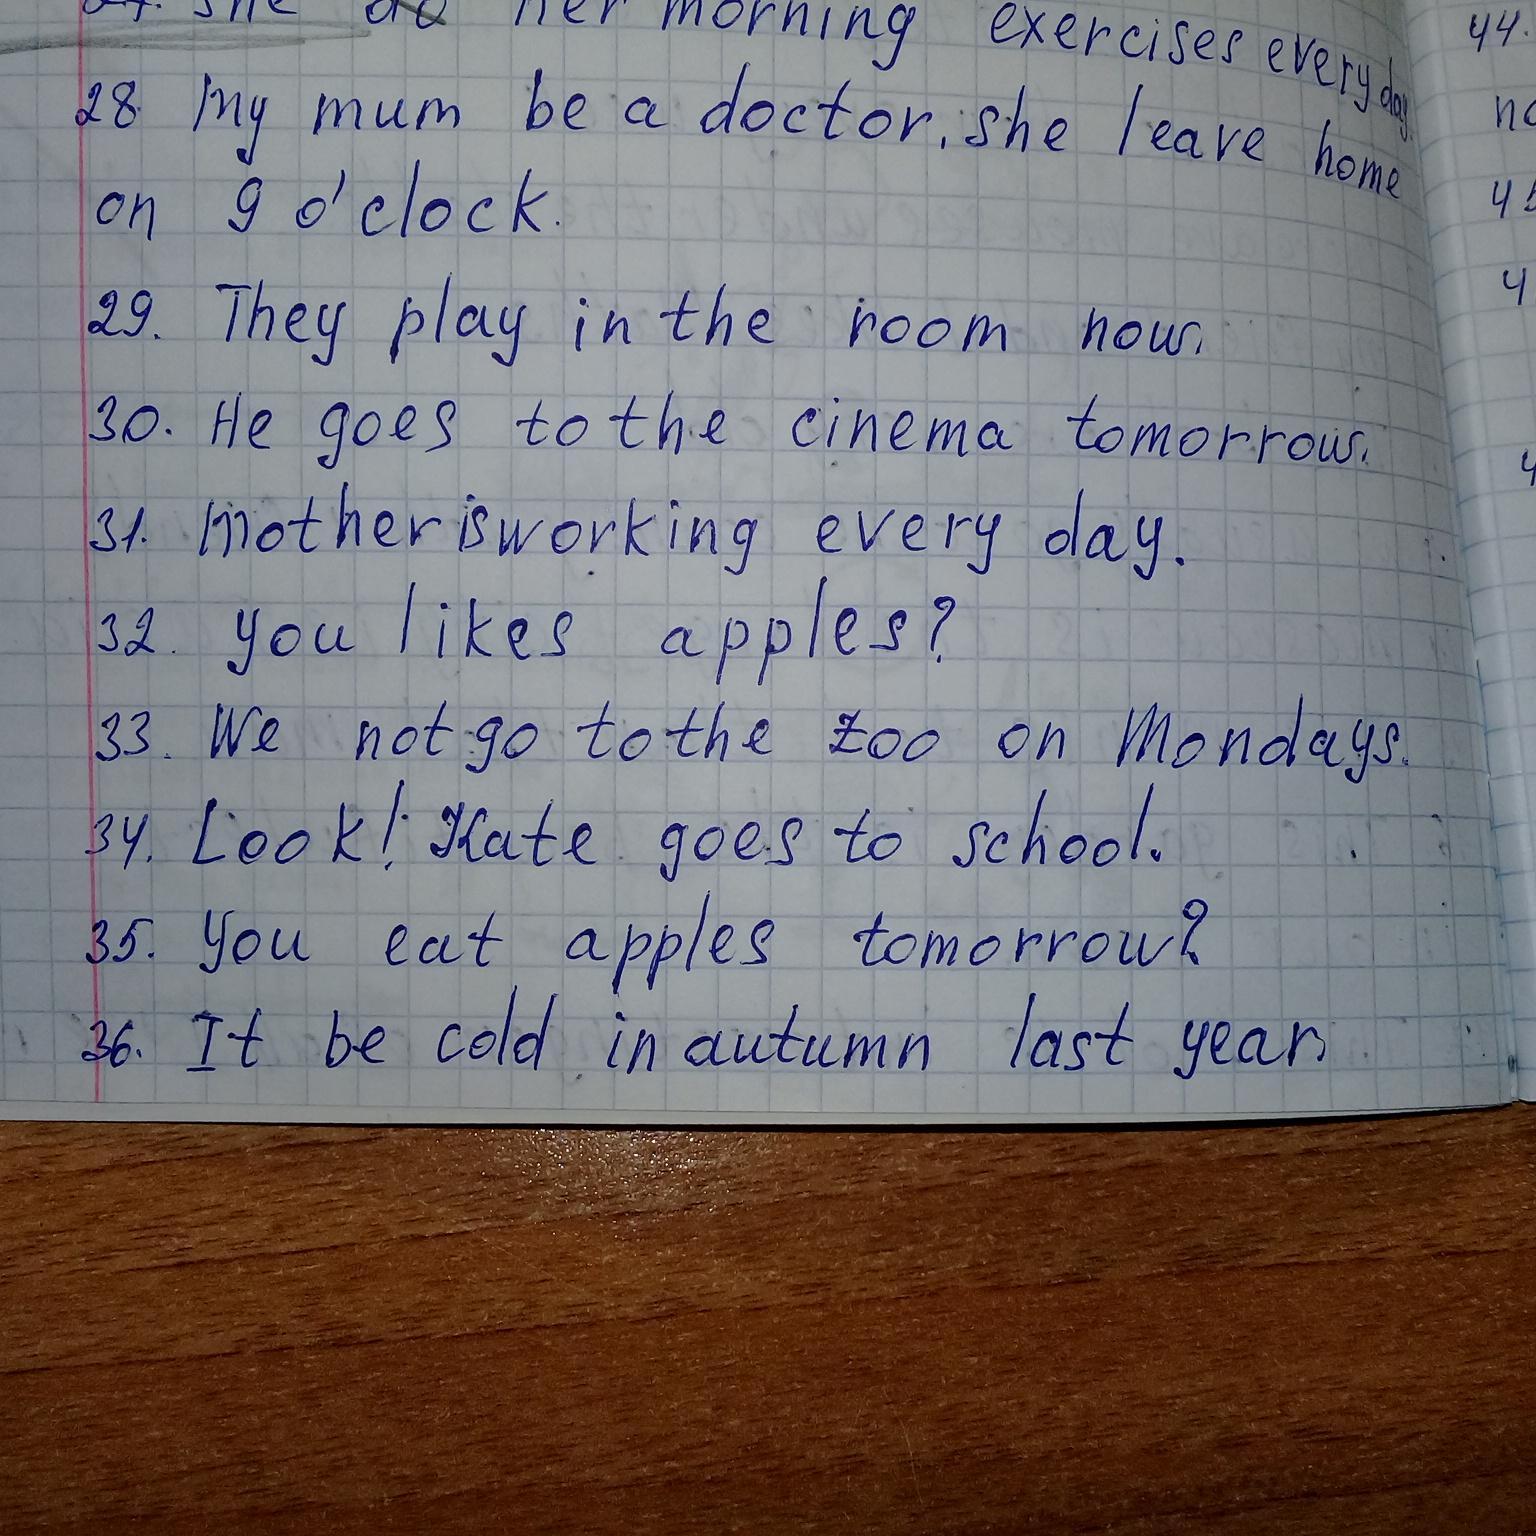 27. She do her morning exercises every day.
28 My mum be a doctor. she leave home
on 9 o'clock.
29. They play in the room now.
30. He goes to the cinema tomorrow.
31. Mother is working every day.
32. you likes apples?
33. We not go to the zoo on Mondays.
34. Look! Kate goes to school.
35. you eat apples tomorrow?
36. It be cold in autumn last year.
44.